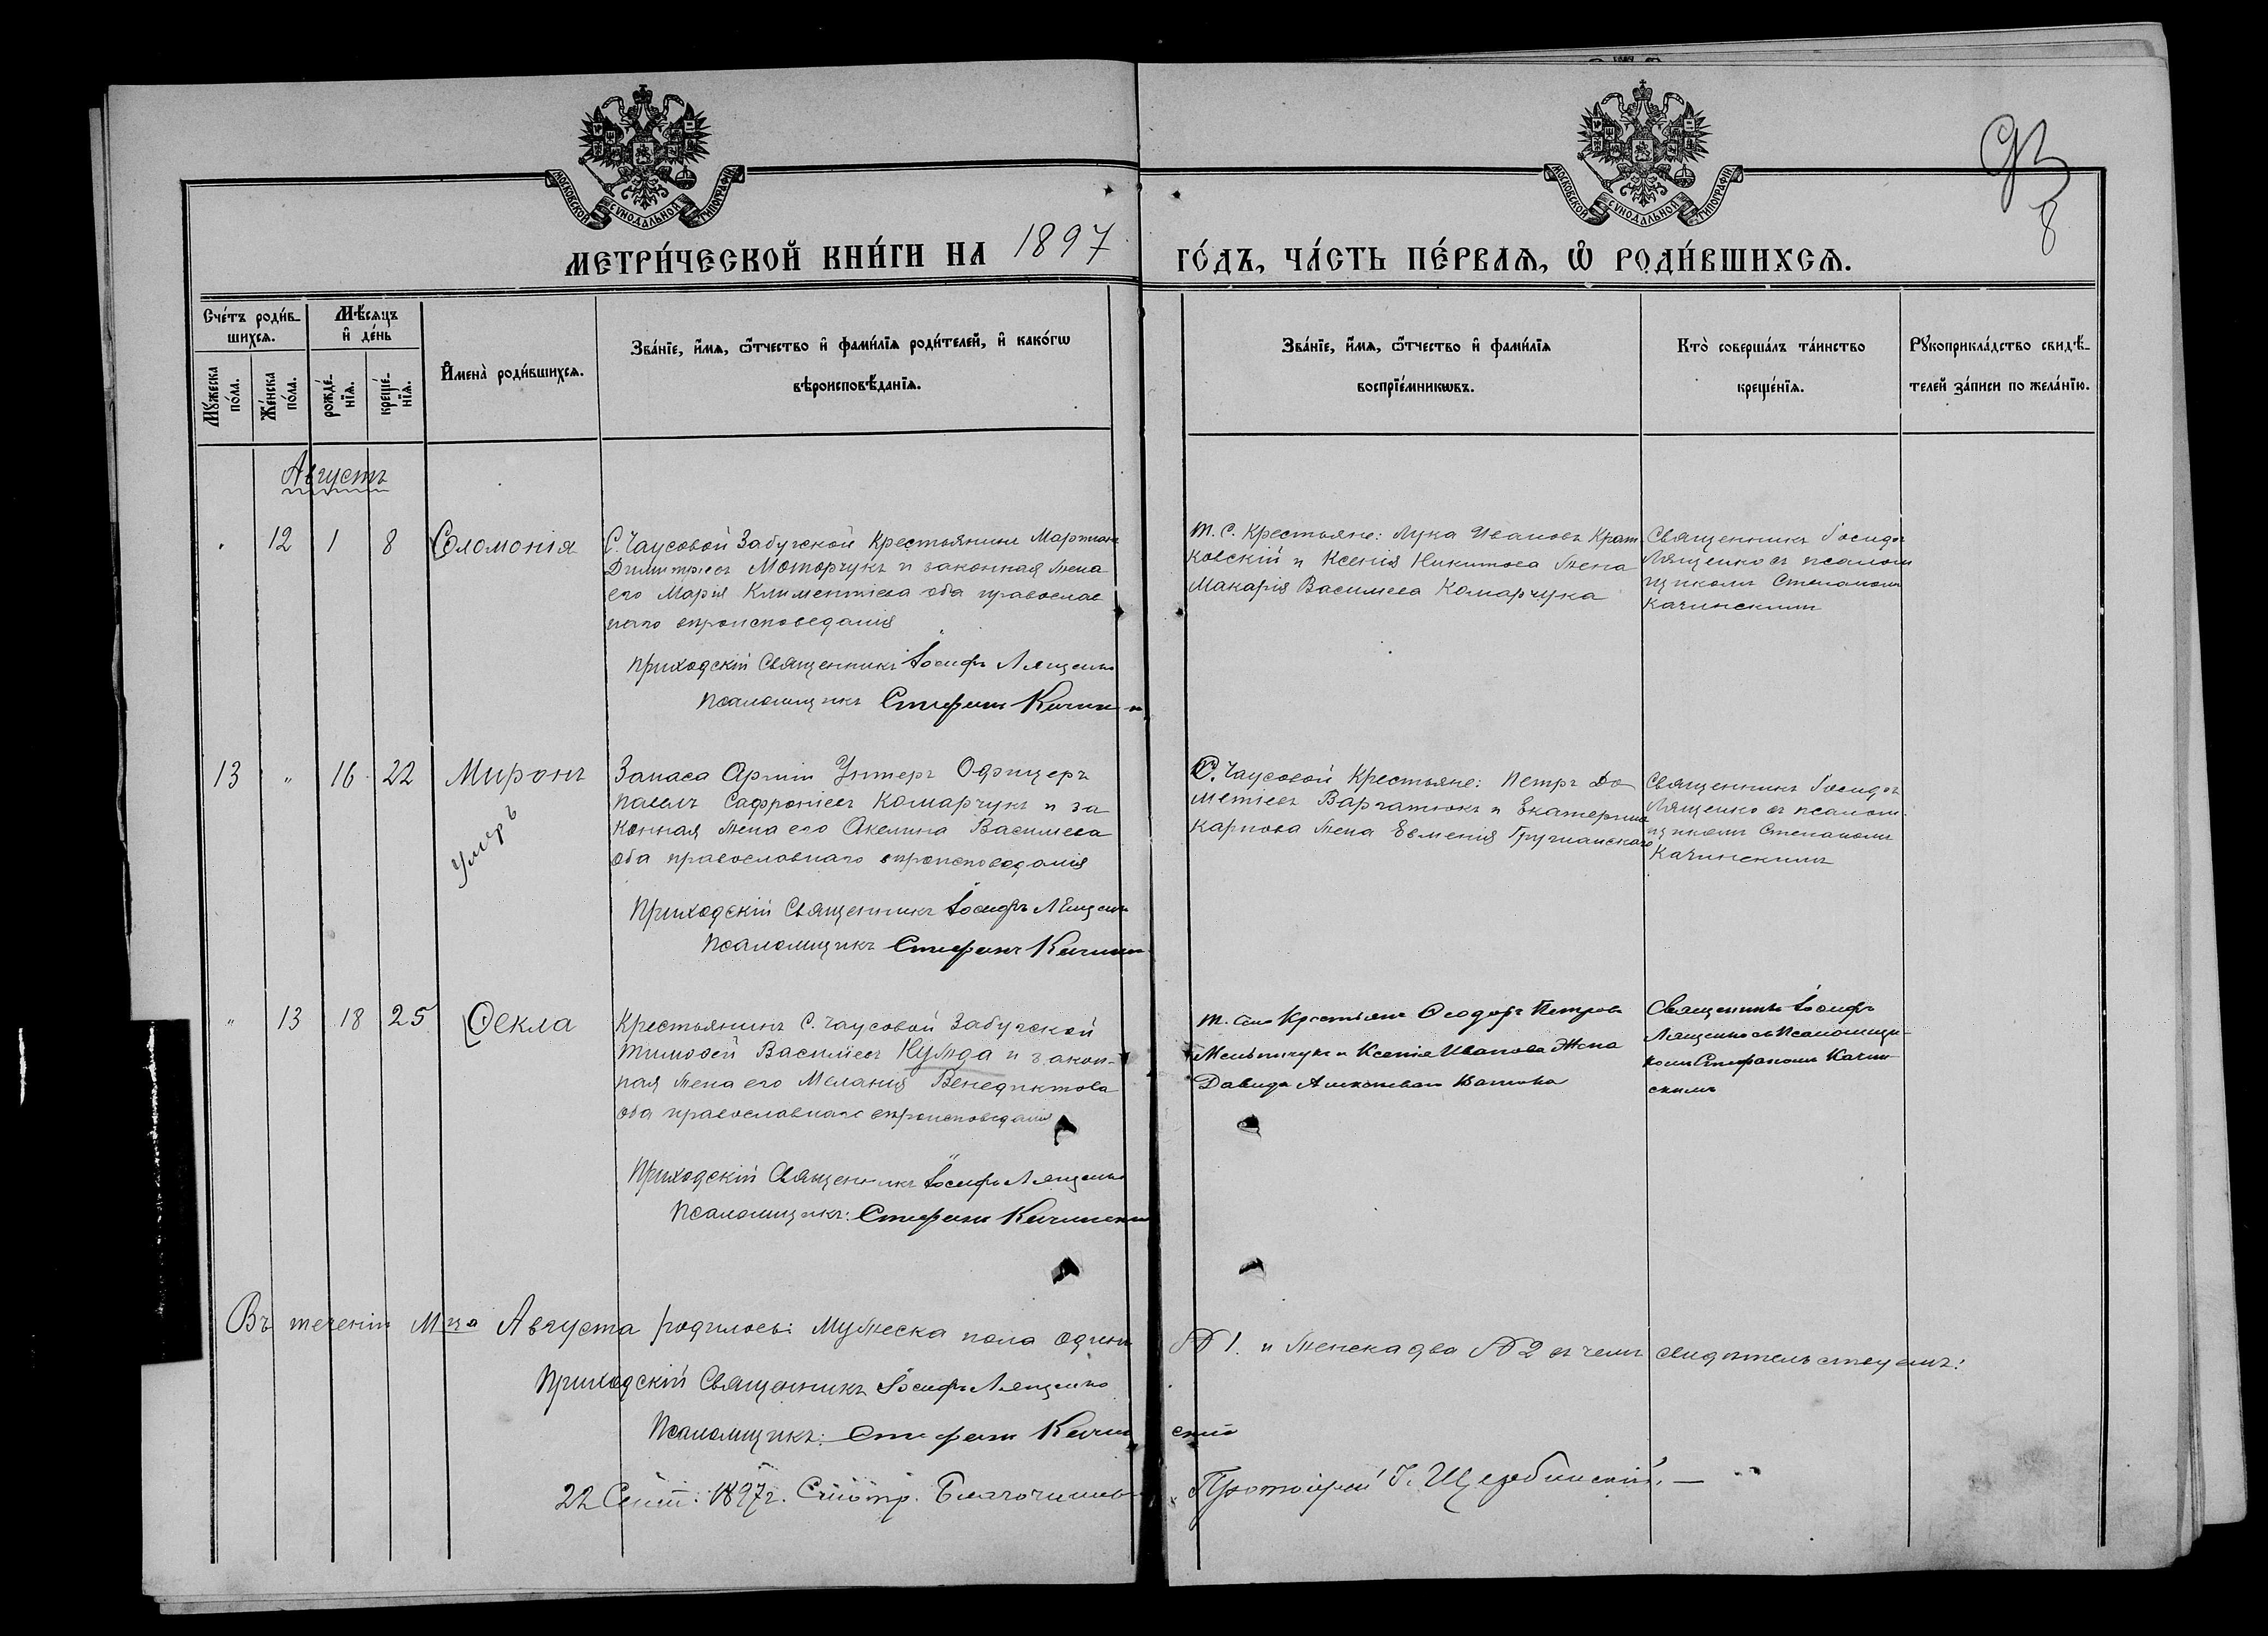 93
8
МОСКОВСКОЙ СѴНОДАЛЬНОЙ ТИПОГРАФІИ
МОСКОВСКОЙ СѴНОДАЛЬНОЙ ТИПОГРАФІИ
МЕТРИ́ЧЕСКОЙ КНИ́ГИ НА 1897 ГО́ДЪ, ЧА́СТЬ ПЕ́РВАѦ, Ѡ҆ РОДИ́ВШИХСѦ.
Сче́тъ роди́в-
шихсѧ.
Мꙋ́жеска
по́ла.
Же́нска
по́ла.
Мѣ́сѧцъ
и҆ де́нь
рожде́-
нїѧ.
креще́-
нїѧ.
И҆мена̀ роди́вшихсѧ.
Зва́нїе, и҆́мѧ, ѻ҆́тчество и҆ фами́лїѧ роди́телей, и҆ како́гѡ
вѣроисповѣ́данїѧ.
Зва́нїе, и҆́мѧ, ѻ҆́тчество и҆ фами́лїѧ
воспрїе́мникѡвъ.
Кто̀ соверша́лъ та́инство
креще́нїѧ.
Рꙋкоприкла́дство свидѣ́-
телей за́писи по жела́нїю.
Августъ
" 12 1 8 Соломонія
С. Чаусовой Забугской Крестьянинъ Мартинъ
Димитріевъ Моторчукъ и законная жена
его Марія Климентіева оба православ
наго вѣроисповеданія
Приходскій Священникъ Іосифъ Лященко
Псаломщикъ Стефанъ Качин
Т. С. Крестьяне: Лука Ивановъ Крат
ковскій и Ксенія Никитова жена
Макарія Васильева Комарчука
Священникъ Іосифъ
Лященко съ псалом
щикомъ Стефаномъ
Качинскимъ
13 " 16 22 Миронъ
умеръ
Запаса Арміи Унтеръ Офицеръ
Павелъ Сафроніевъ Комарчукъ и за
конная жена его Акелина Васильева
оба православнаго вѣроисповеданія
Приходскій Священникъ Іосифъ Лященко
Псаломщикъ Стефанъ Качин
С. Чаусовой Крестьяне: Петръ До
метіевъ Варчатюкъ и Екатерина
Карпова жена Евменія Гручанскаго
Священникъ Іосифъ
Лященко съ псалом
щикомъ Стефаномъ
Качинскимъ
" 13 18 25 Ѳекла
Крестьянинъ С. Чаусовой Забугской
Тимофей Васильевъ Кужда и закон-
ная жена его Меланія Венедиктова
оба православнаго вѣроисповеданія
Приходскій Священникъ Іосифъ Лященко
Псаломщикъ: Стефанъ Качински
Т. Села Крестьяне Ѳеодоръ Петровъ
Мельничукъ и Ксенія Иванова жена
Давида
Священникъ Іосифъ
Лященко съ Псаломщи-
комъ Стефаномъ Качин
скимъ
Въ теченіи М-ца Августа родилось: мужеска пола одинъ № 1. и женска два № 2 въ чемъ свидѣтельствуемъ:
Приходскій Священникъ Іосифъ Лященко
Псаломщикъ: Стефанъ Качин скій
22 Сент: 1897 г. Смотр. Благочинный Протоіерей І. Щербинскій. —